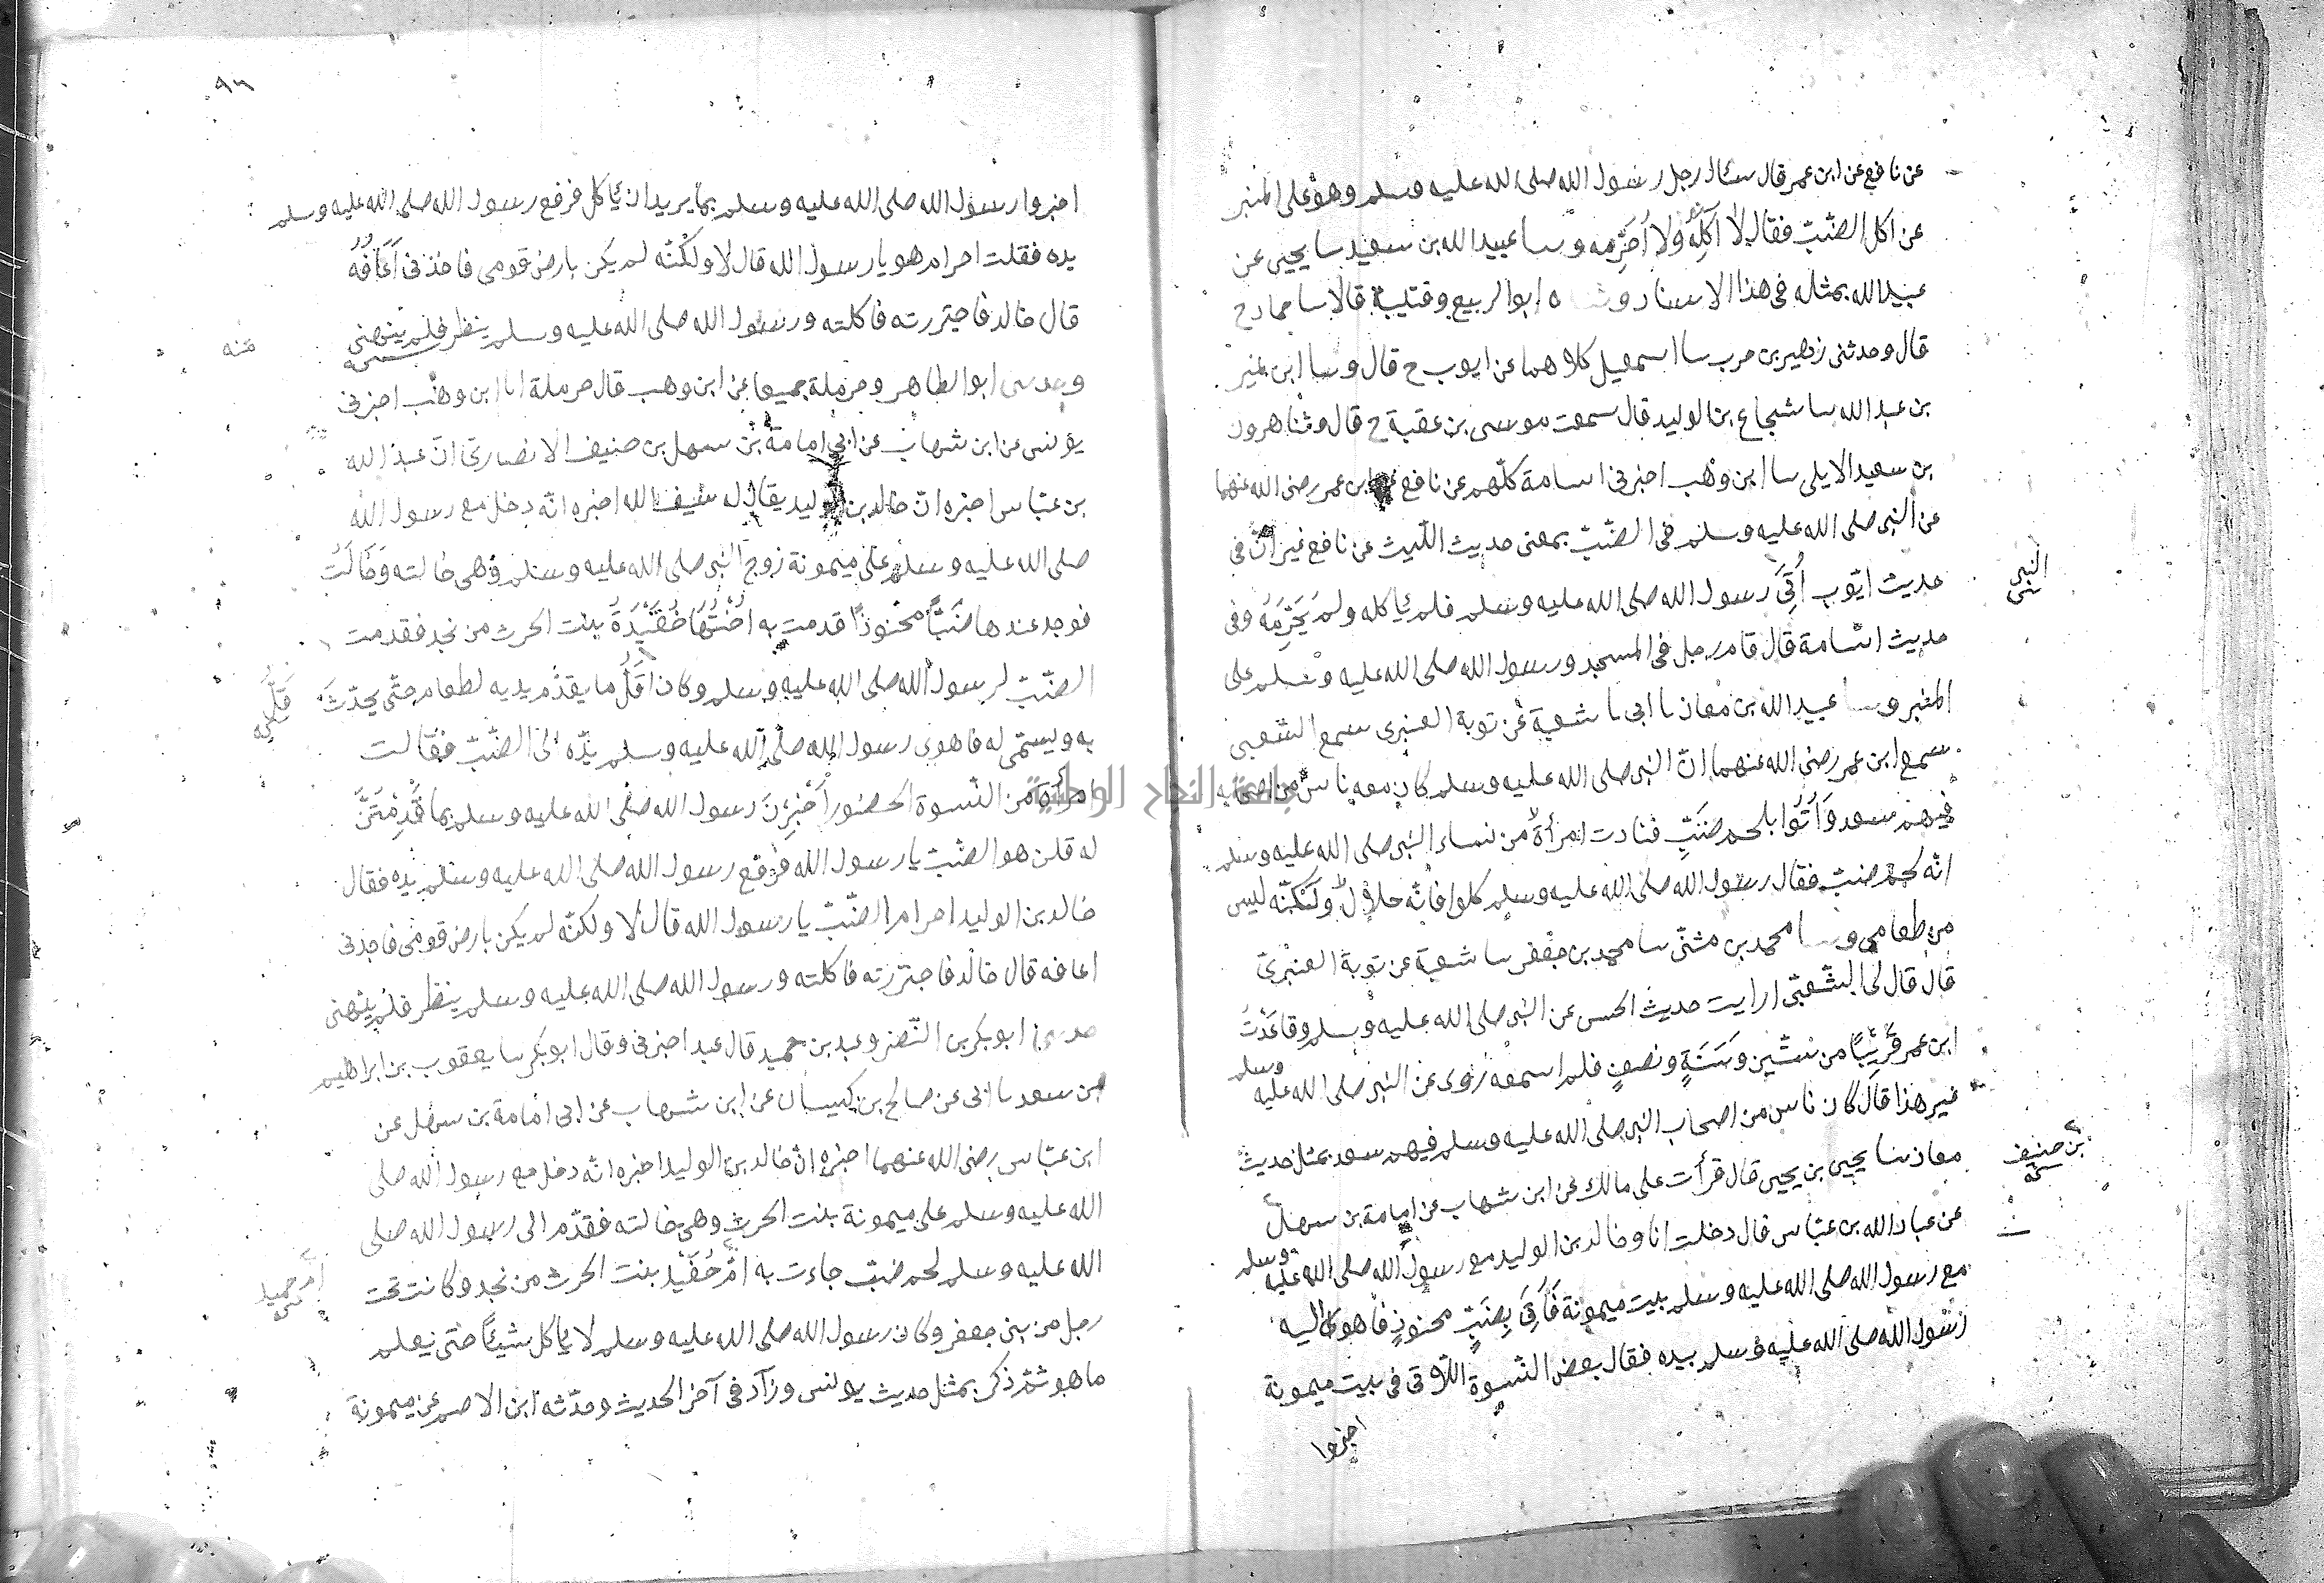 عن نافع عن ابن عمر قال سئال رجل رسول الله صلى الله عليه وسلم وهو على المنبر
عن اكل الضّبّ فقال لا آكله ولا أحَرِّمه وسا عبيد الله بن سعيد سا يحيى عن
عبيد الله بمثله فى هذا الاسناد وثناه ابو الربيع وقتيبة قالا سا حماد ح
قال وحدثنى زهير بن حرب سا اسمعيل كلاهما عن ايوب ح قال وسا ابن نمير
بن عبد الله سا شجاع بن الوليد قال سمعت موسى بن عقبة ح قال وثنا هرون
بن سعيد الايلى سا ابن وهب اخبرنى اسامة كلّهم عن نافع عن ابن عمر رضى الله عنهما
عن النبى صلى الله عليه وسلم فى الضّبّ بمعنى حديث اللّيث عن نافع غير انّ فى
النبى
حديث ايّوب أُتِىَ رسول الله صلى الله عليه وسلم فلم ياكله ولم يُحَرِّمْهُ وفى
حديث اسامة قال قام رجل فى المسجد ورسول الله صلى الله عليه وسلم على
المنبر وسا عبيد الله بن معاذ نا ابى نا شعبة عن توبة العنبرى سمع الشعبى
سمع ابن عمر رضى الله عنهما انّ النبى صلى الله عليه وسلم كان معه ناس من اصحابه
فيهم سعد وَأُتُوا بلحم ضَبٍّ فنادت امرأة من نساء النبى صلى الله عليه وسلم
انّه لحم ضبّ فقال رسول الله صلى الله عليه وسلم كلوا فانّه حلال ولكنّه ليس
من طعامى وسا محمد بن مثنّى سا محمد بن جعفر سا شعبة عن توبة العنبرىّ
قال قال لى الشّعبىّ ارايت حديث الحسن عن النبى صلى الله عليه وسلم وقاعَدْتُ
ابن عمر قَرِيبًا من سنتين وَسَنَةٍ ونصفٍ فلم اسمعه روى عن النبى صلى الله عليه وسلم
غير هذا قال كان ناس من اصحاب النبى صلى الله عليه وسلم فيهم سعد بمثل حديث
معاذ سا يحيى بن يحيى قال قرأت على مالك عن ابن شهاب عن امامة بن سهل
بن حنيف
عن عباد الله بن عبّاس قال دخلت انا وخالد بن الوليد مع رسول الله صلى الله عليه وسلم
مع رسول الله صلى الله عليه وسلم بيت ميمونة فَأُتِىَ بِضَبٍّ محنوذٍ فاهوى اليه
رسول الله صلى الله عليه وسلم بيده فقال بعض النّسوة اللّاتى فى بيت ميمونة
اخبروا
٩٦
اخبروا رسول الله صلى الله عليه وسلم بما يريد ان ياكل فرفع رسول الله صلى الله عليه وسلم
يده فقلت احرام هو يا رسول الله قال لا ولكنّه لم يكن بارض قومى فاخذنى أَعَافُهُ
قال خالد فاجتررته فاكلته ورسول الله صلى الله عليه وسلم ينظر فلم ينهنى
عنه
وحدثنى ابو الطاهر وحرملة جميعا عن ابن وهب قال حرملة انا ابن وهب اخبرنى
يونس عن ابن شهاب عن ابى امامة بن سهل بن حنيف الانصارىّ انّ عبد الله
بن عبّاس اخبره انّ خالد بن الوليد يقال له سيف الله اخبره انّه دخل مع رسول الله
صلى الله عليه وسلم على ميمونة زوج النبى صلى الله عليه وسلم وهى خالته وَخَالَتُ
فوجد عندها ضَبًّا محنوذًا قدمت به أُخْتُهَا حُفَيْدَةُ بنت الحرث من نجد فقدمت
الضّبّ لرسول الله صلى الله عليه وسلم وكان أَقَلُّ ما يقدّم يديه لطعام حتّى يحدّثَ
قَلَّ
به ويسمّى له فاهوى رسول الله صلى الله عليه وسلم يدّه الى الضّبّ فقالت
امرأة من النّسوة الحضور أَخْبِرْنَ رسول الله صلى الله عليه وسلم بما قَدَّمْتُنَّ
له قلن هو الضّبّ يا رسول الله فرفع رسول الله صلى الله عليه وسلم يده فقال
خالد بن الوليد احرام الضّبّ يا رسول الله قال لا ولكنّه لم يكن بارض قومى فاجدنى
اعافه قال خالد فاجتررته فاكلته ورسول الله صلى الله عليه وسلم ينظر فلم ينهنى
حدثنى ابو بكر بن النّضر وعبد بن حميد قال عبد اخبرنى وقال ابو بكر سا يعقوب بن ابراهيم
بن سعد نا ابى عن صالح بن كيسان عن ابن شهاب عن ابى امامة بن سهل عن
ابن عبّاس رضى الله عنهما اخبره انّ خالد بن الوليد اخبره انّه دخل مع رسول الله صلى
الله عليه وسلم على ميمونة بنت الحرث وهى خالته فقدّم الى رسول الله صلى
الله عليه وسلم لحم ضبّ جاءت به امّ حُفَيْد بنت الحرث من نجد وكانت تحت
أم حميد
رجل من بنى جعفر وكان رسول الله صلى الله عليه وسلم لا ياكل شيئًا حتى يعلم
ما هو ثمّ ذكر بمثل حديث يونس وزاد فى آخر الحديث وحدّثه ابن الاصم عن ميمونة
جامعة النجاح الوطنية